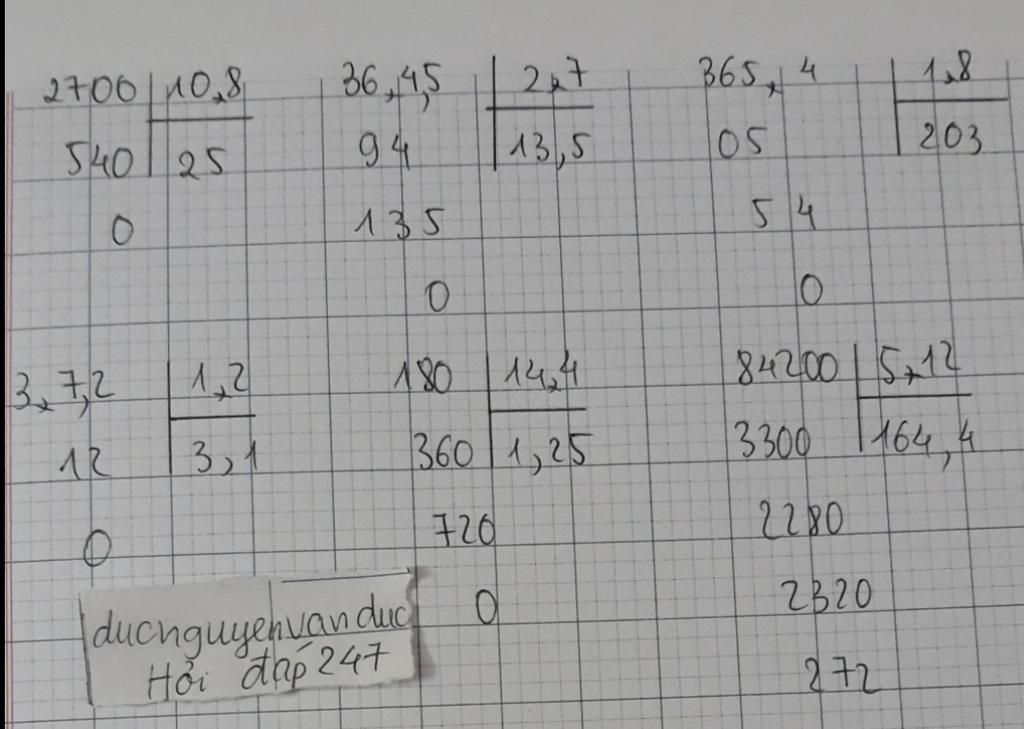 2700 10,8 36,4,5 2,7 365,4 1,8
540 25 94 13,5 05 203
0 135 54
0 0
3,7,2 1,2 180 14,4 84200 5,12
12 3,1 360 1,25 3300 164,4
0 720 2280
0 2320
272
ducnguyenvanduc
Hỏi đáp 247